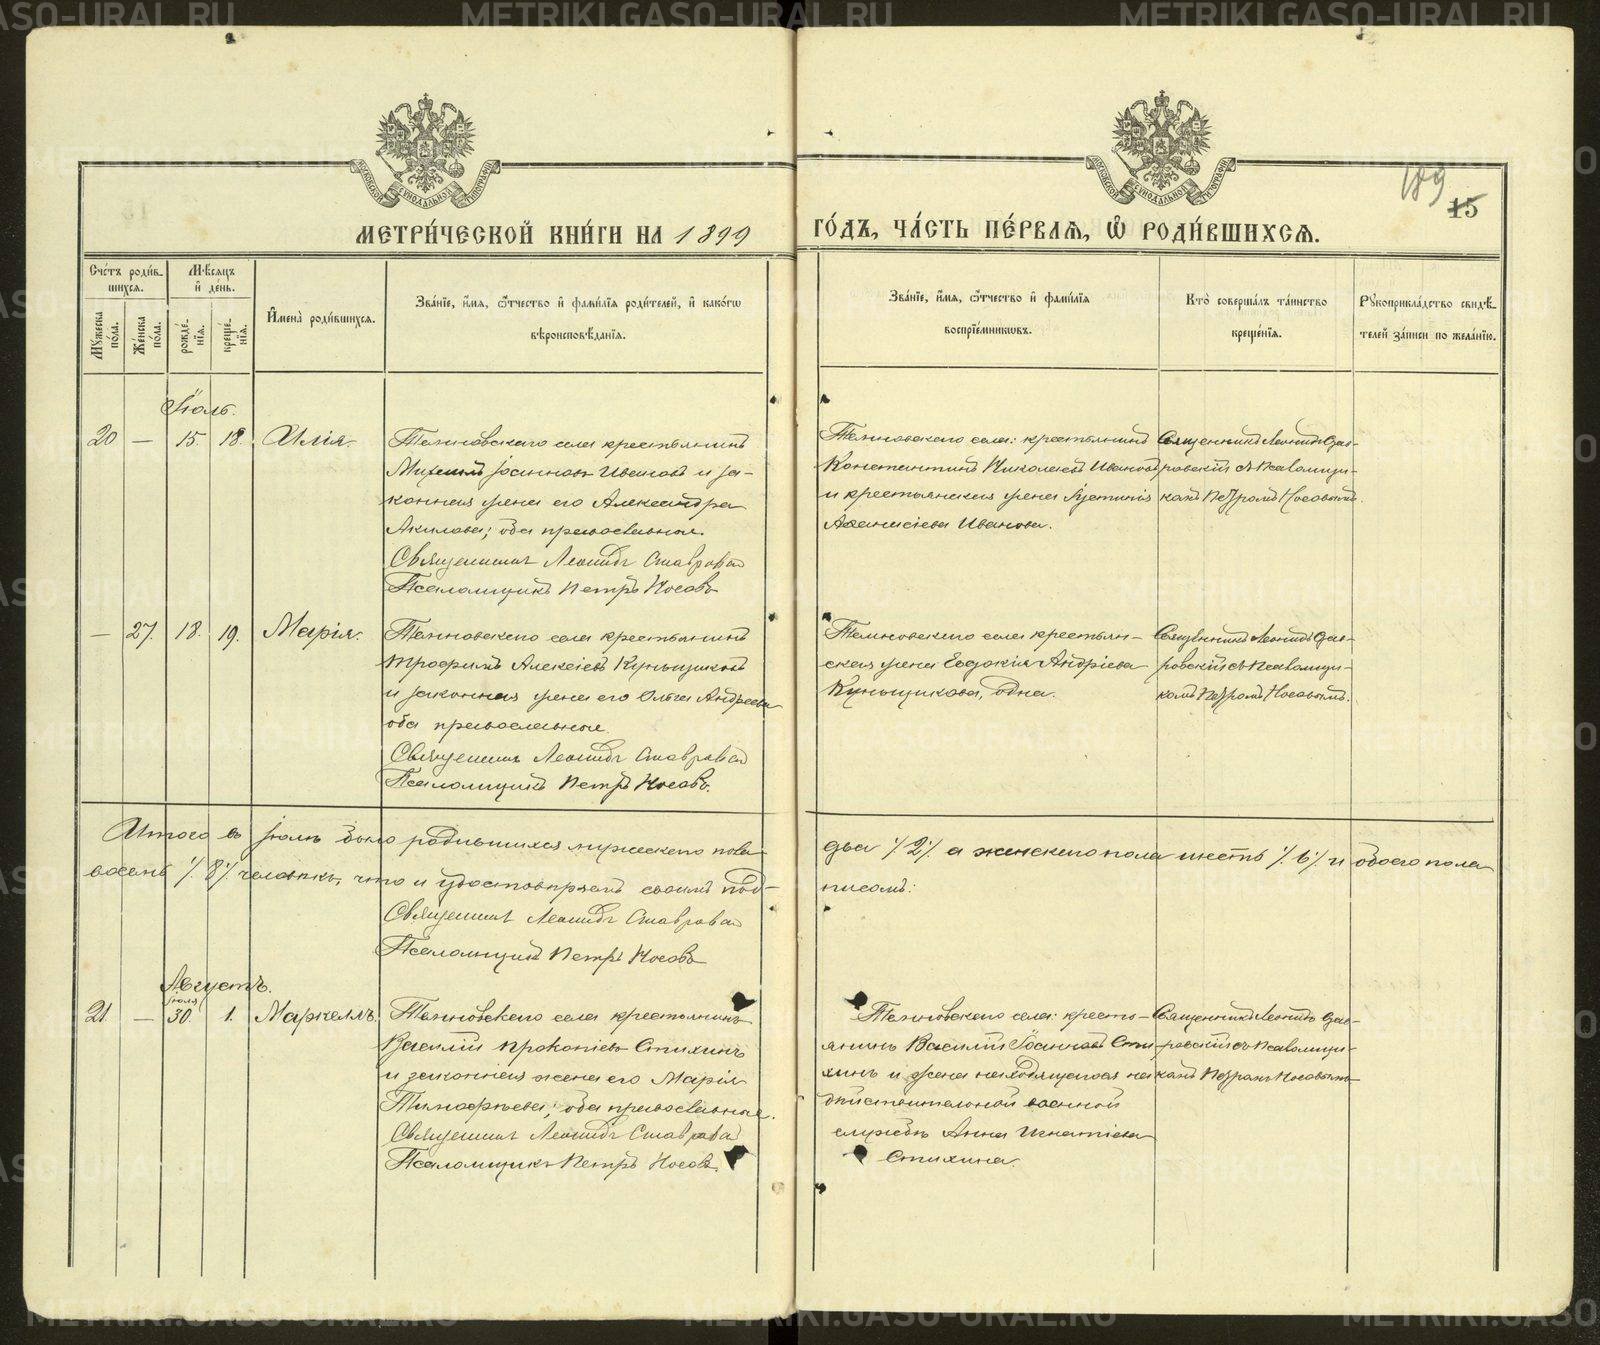 METRIKI.GASO-URAL.RU
189
15
МОСКОВСКОЙ СѴНОДАЛЬНОЙ ТИПОГРАФІИ
МОСКОВСКОЙ СѴНОДАЛЬНОЙ ТИПОГРАФІИ
МЕТРИ́ЧЕСКОЙ КНИ́ГИ НА 1899
ГО́ДЪ, ЧА́СТЬ ПЕ́РВАѦ, Ѡ҆ РОДИ́ВШИХСѦ.
Сче́тъ роди́в-
шихсѧ.
Мꙋ́жеска по́ла.
Же́нска по́ла.
Мѣ́сѧцъ
и҆ де́нь.
рожде́-нїѧ.
креще́-нїѧ.
И҆мена̀ роди́вшихсѧ.
Зва́нїе, и҆́мѧ, ѻ҆́тчество и҆ фами́лїѧ роди́телей, и҆ како́гѡ
вѣроисповѣ́данїѧ.
Зва́нїе, и҆́мѧ, ѻ҆́тчество и҆ фами́лїѧ
воспрїе́мникѡвъ.
Кто̀ соверша́лъ та́инство
креще́нїѧ.
Рꙋкоприкла́дство свидѣ́-
телей за́писи по жела́нїю.
Іюль.
20 — 15. 18. Илія.
села крестьянинъ
Іоанновъ Ивановъ и за-
конная жена его Александра
Акилова; оба православные.
Священникъ Леонидъ Ставровскій
Псаломщикъ Петръ Носовъ
села: крестьянинъ
Константинъ Николаевъ Ивановъ
и крестьянская жена
Аѳанасіева Иванова.
Священникъ Леонидъ Став-
ровскій съ Псаломщи-
комъ Петромъ Носовымъ.
— 27. 18. 19. Марія.
села крестьянинъ
Трофимъ Алексіевъ
и законная жена его Ольга Андреева
оба православные.
Священникъ Леонидъ Ставровскій
Псаломщикъ Петръ Носовъ.
села крестьян-
ская жена Евдокія Андріева
одна.
Священникъ Леонидъ Став-
ровскій съ Псаломщи-
комъ Петромъ Носовымъ.
Итого въ Іюлѣ было родившихся мужескаго пола
два ./.2./. а женскаго пола шесть ./.6./. и обоего пола
восемь ./.8./. человѣкъ, что и удостовѣряемъ своимъ под-
писомъ:
Священникъ Леонидъ Ставровскій
Псаломщикъ Петръ Носовъ
Августъ.
іюля
21. — 30. 1. Маркеллъ.
села крестьянинъ
Василій Прокопіевъ Стихинъ
и законная жена его Марія
Тимофѣева; оба православные.
Священникъ Леонидъ Ставровскій
Псаломщикъ Петръ Носовъ.
села: кресть-
янинъ Василій Іоанновъ Сти-
хинъ и жена находящагося на
дѣйствительной военной
службѣ Анна Игнатіева
Стихина.
Священникъ Леонидъ Став-
ровскій съ Псаломщи-
комъ Петромъ Носовымъ